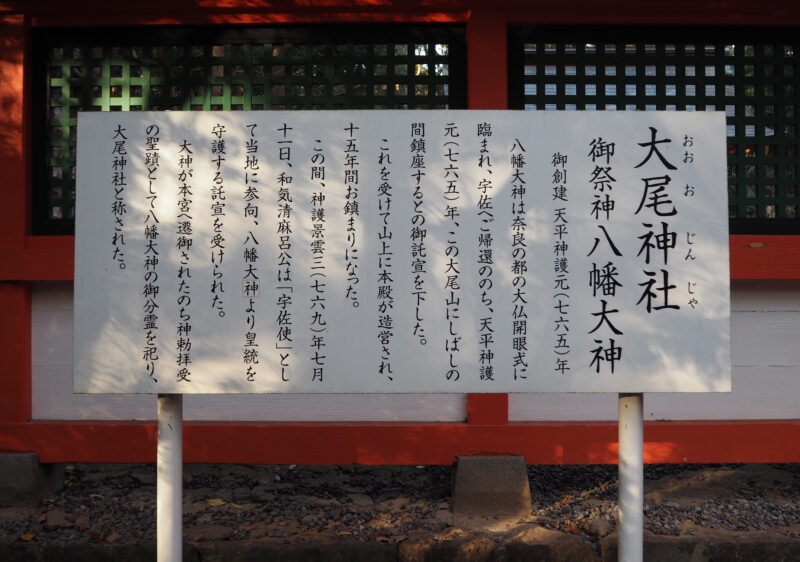 おおおじんじゃ
大尾神社
御祭神八幡大神
御創建 天平神護元(七六五)年
八幡大神は奈良の都の大仏開眼式に
臨まれ、宇佐へご帰還ののち、天平神護
元(七六五)年、この大尾山にしばしの
間鎮座するとの御託宣を下した。
これを受けて山上に本殿が造営され、
十五年間お鎮まりになった。
この間、神護景雲三(七六九)年七月
十一日、和気清麻呂公は「宇佐使」とし
て当地に参向、八幡大神より皇統を
守護する託宣を受けられた。
大神が本宮へ遷御されたのち神勅拝受
の聖蹟として八幡大神の御分霊を祀り、
大尾神社と称された。